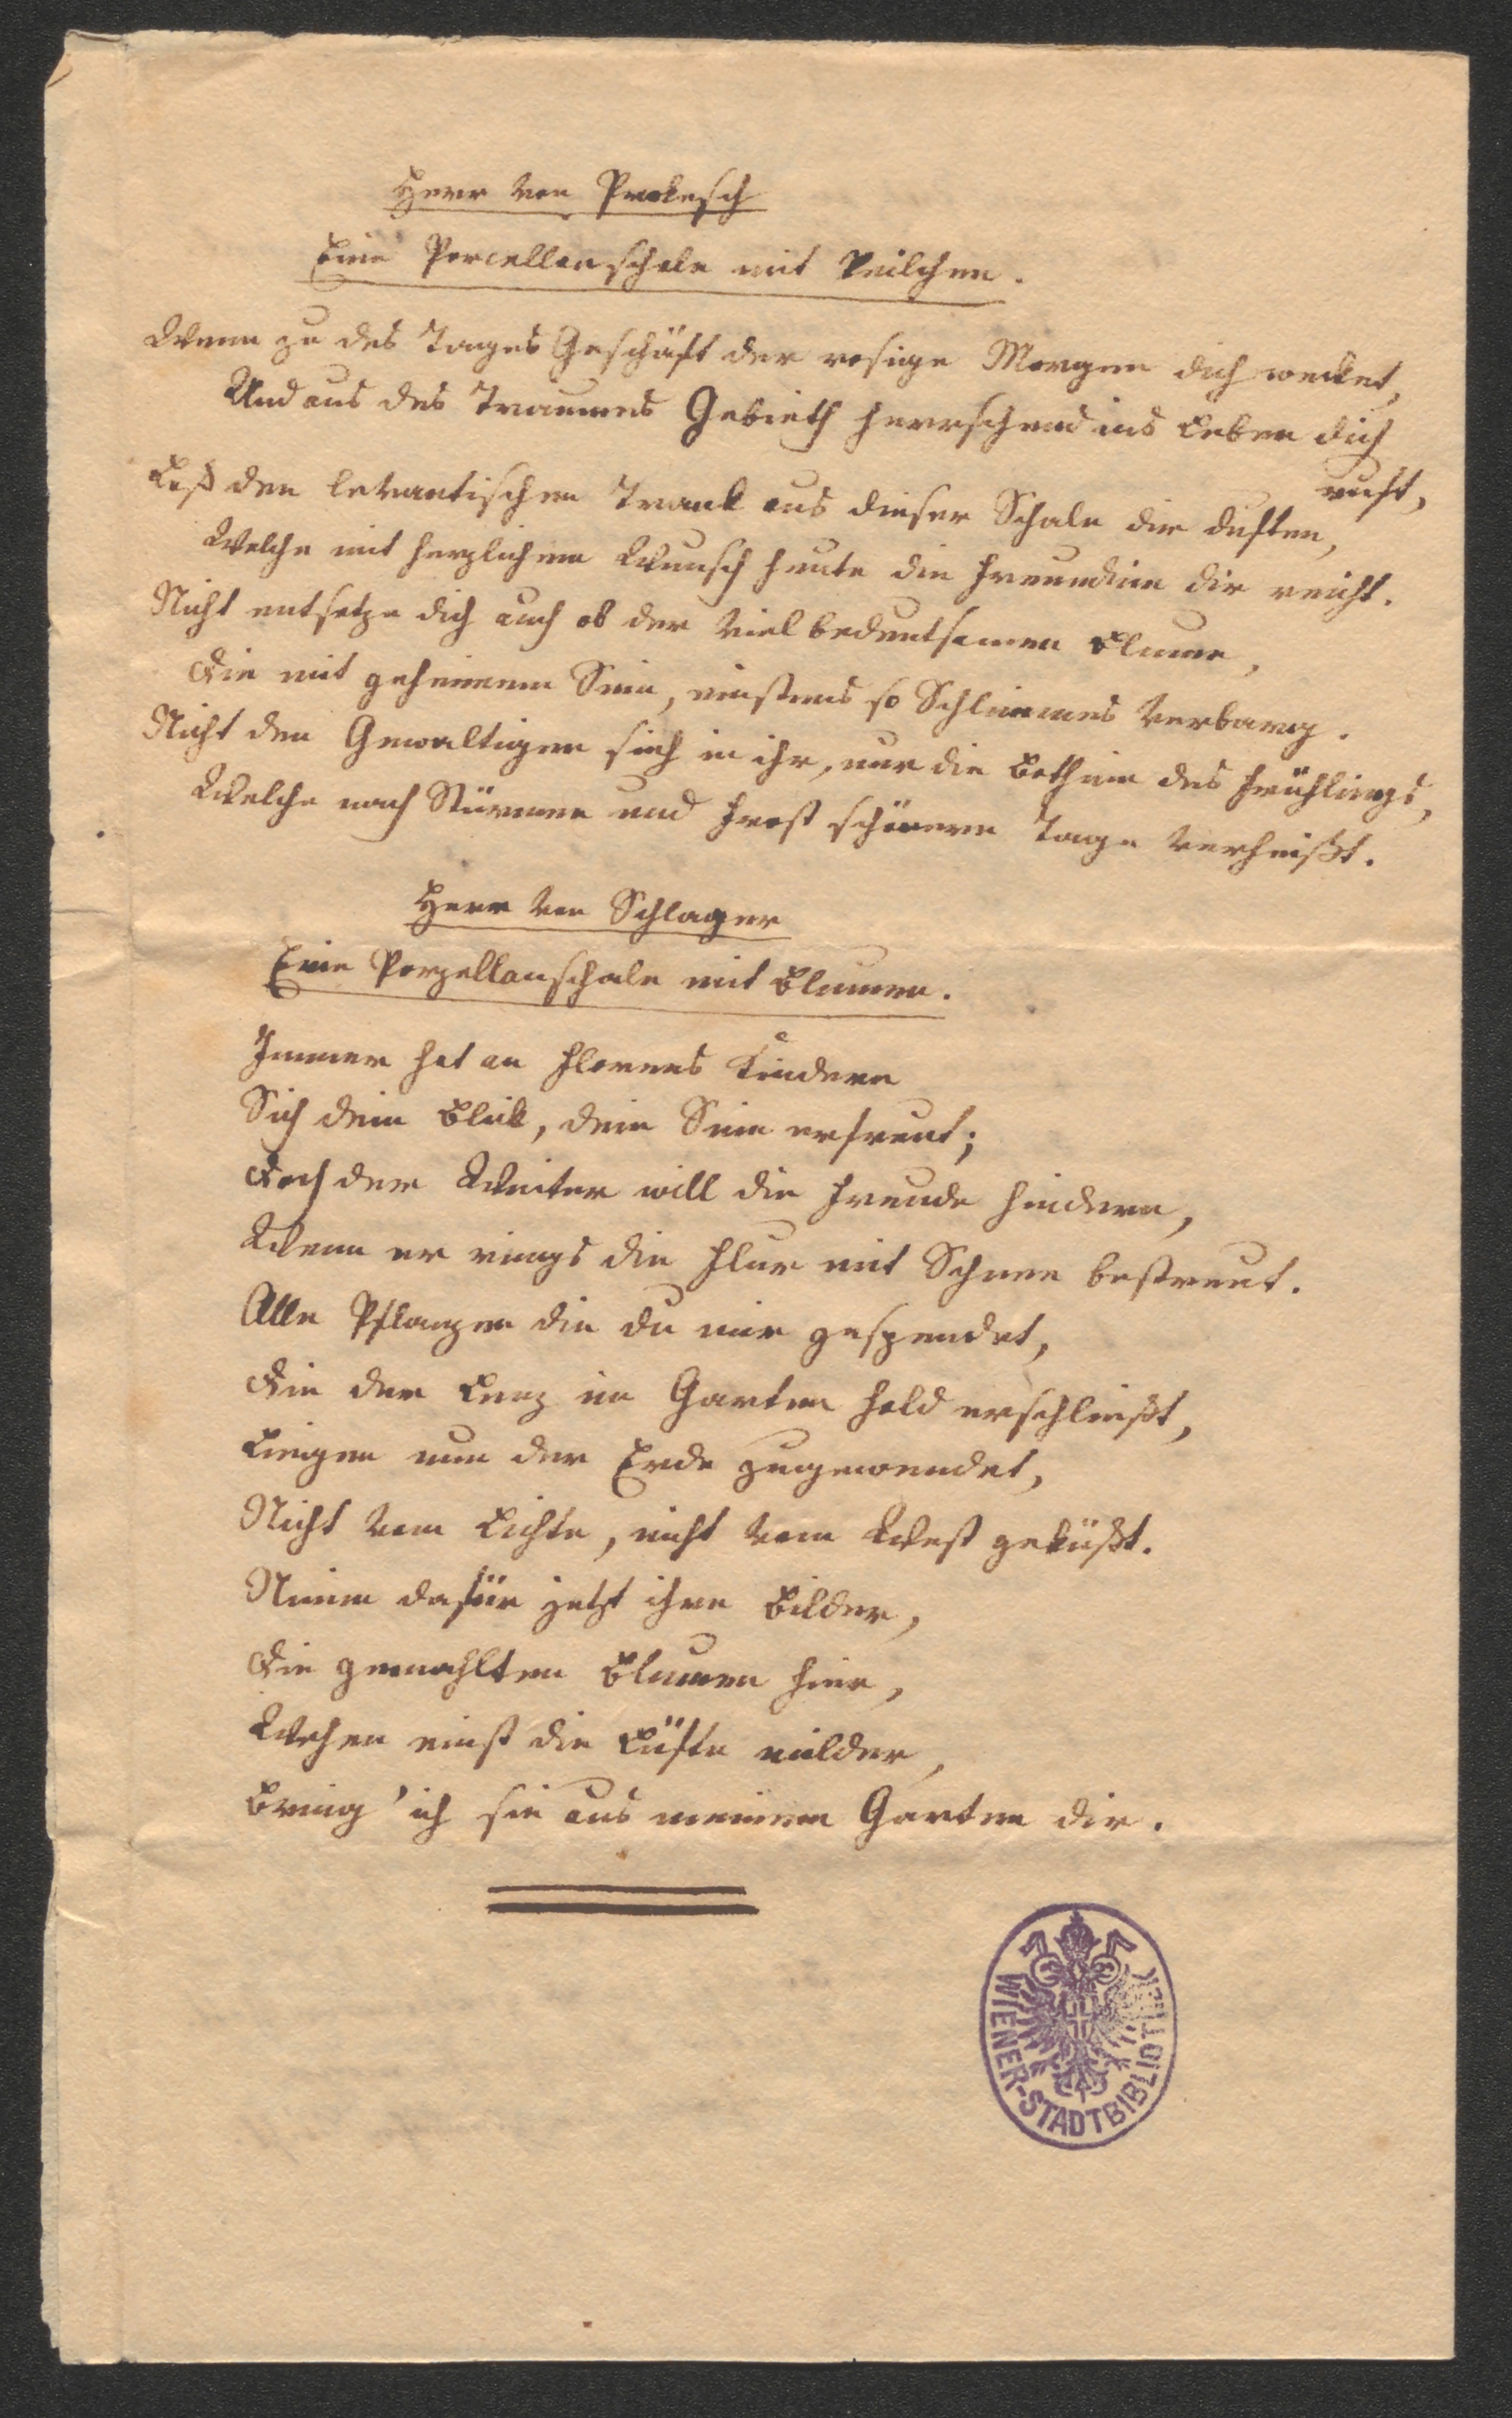 Herr von Prokesch
Eine Porcellanschale mit Veilchen.
Wenn zu des Tages Geschäft der rosige Morgen dich wecket,
Und aus des Traumes Gebieth herrschend ins Leben dich
ruft,
Laß den levantischen Trank aus dieser Schale dir duften,
Welche mit herzlichem Wunsch heute die Freundinn dir reicht.
Nicht entsetze dich auch ob der viel bedeutsamen Blume,
Die mit geheimem Sinn, einstens so Schlimmes verbarg.
Nicht den Gewaltigen sieh in ihr, nur die Bothinn des Frühlings,
Welche nach Stürmen und Frost schönere Tage verheißt.
Herr von Schlager
Eine Porzellanschale mit Blumen.
Immer hat an Florens Kindern
Sich dein Blick, dein Sinn erfreut;
Doch der Winter will die Freude hindern,
Wenn er rings die Flur mit Schnee bestreut.
Alle Pflanzen die du mir gespendet,
Die der Lenz im Garten hold erschließt,
Liegen nun der Erde zugewendet,
Nicht vom Lichte, nicht vom West geküßt.
Nimm dafür jetzt ihre Bilder,
Die gemahlten Blumen hier,
Wehen einst die Lüfte milder,
Bring' ich sie aus meinem Garten dir.
WIENER-STADTBIBLIOTHEK